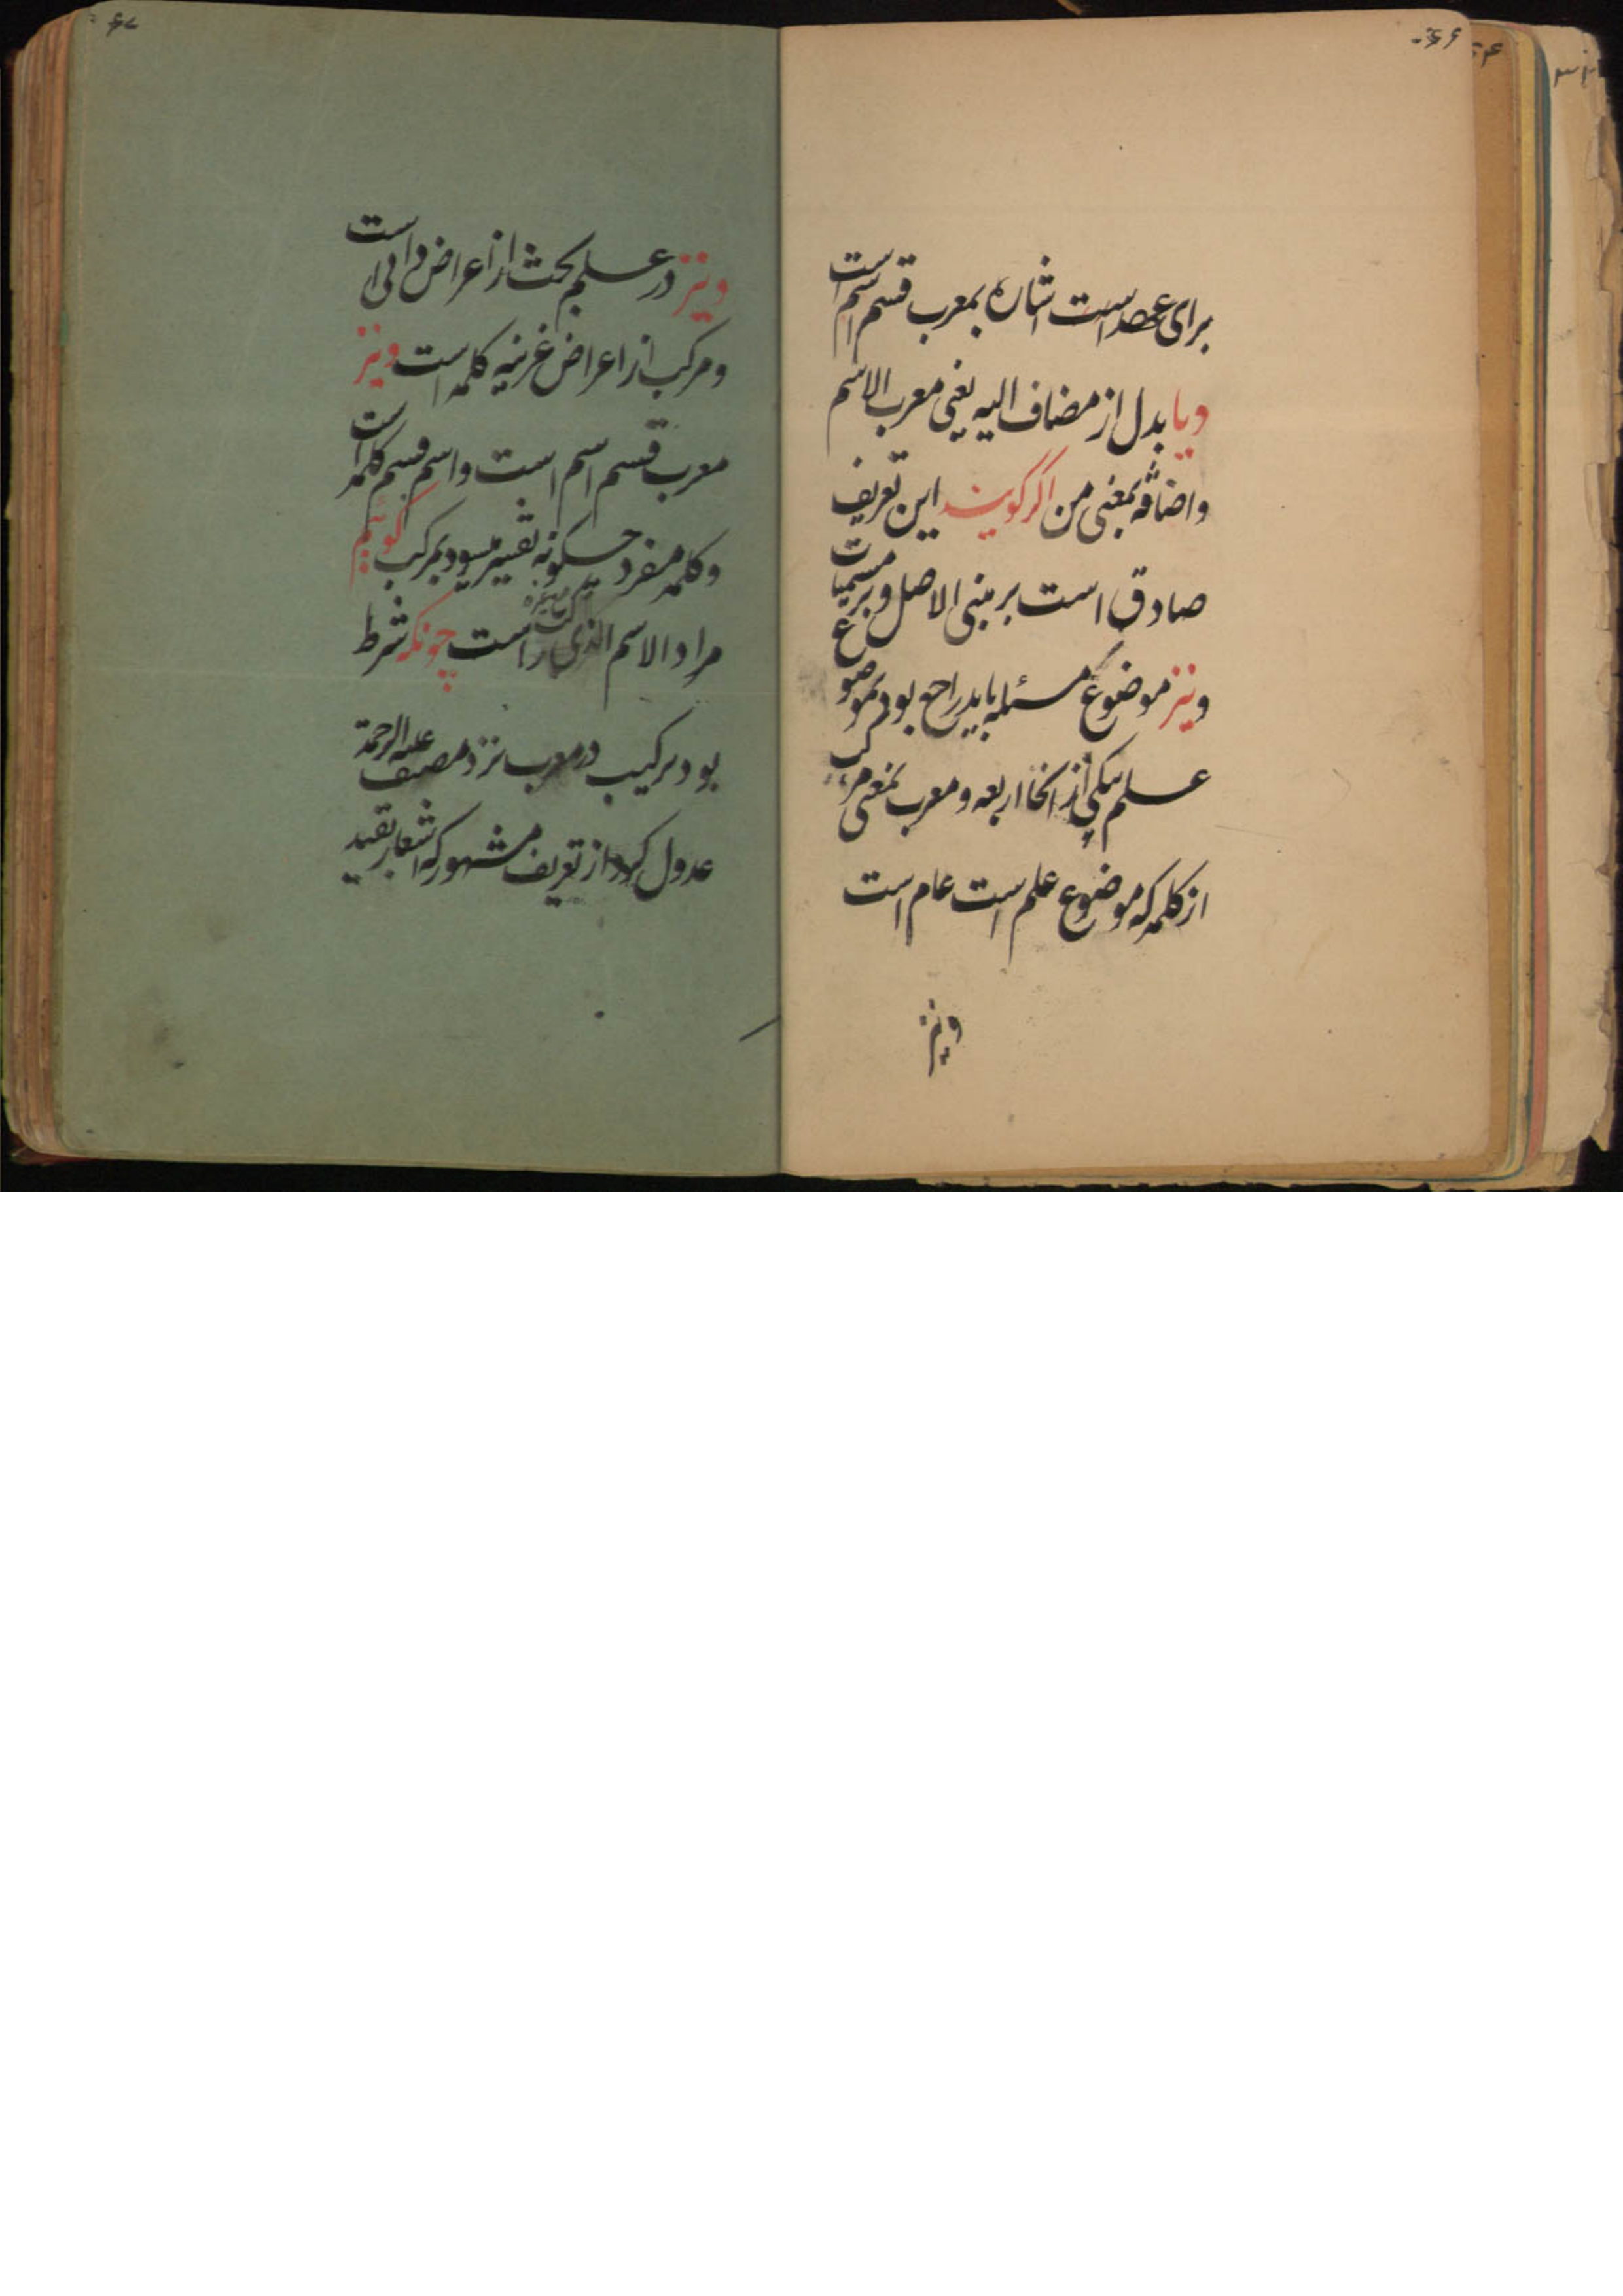 ۶۶
برای عهد است اشاره بمعرب قسم اسم است
و یا بدل از مضاف الیه یعنی معرب الاسم
و اضافه بمعنی من اگر گویند این تعریف
صادق است بر مبنی الاصل و بر مسمیات
و نیز موضوع مسئله باید راجع بود بموضوع
علم بیکی از انحا اربعه و معرب بمعنی مرکب
از کلمه که موضوع علم است عام است
و نیز
۶۷
و نیز در علم بحث از اعراض است
و مرکب از اعراض غریبه کلمه است و نیز
معرب قسم اسم است و اسم قسم کلمه است
و کلمه مفرد چگونه تفسیر میشود بمرکب گوئیم
مراد الاسم الذی است چونکه شرط
بود ترکیب در معرب نزد مصنف علیه الرحمة
عدول کرد از تعریف مشهور که اشعار بقید